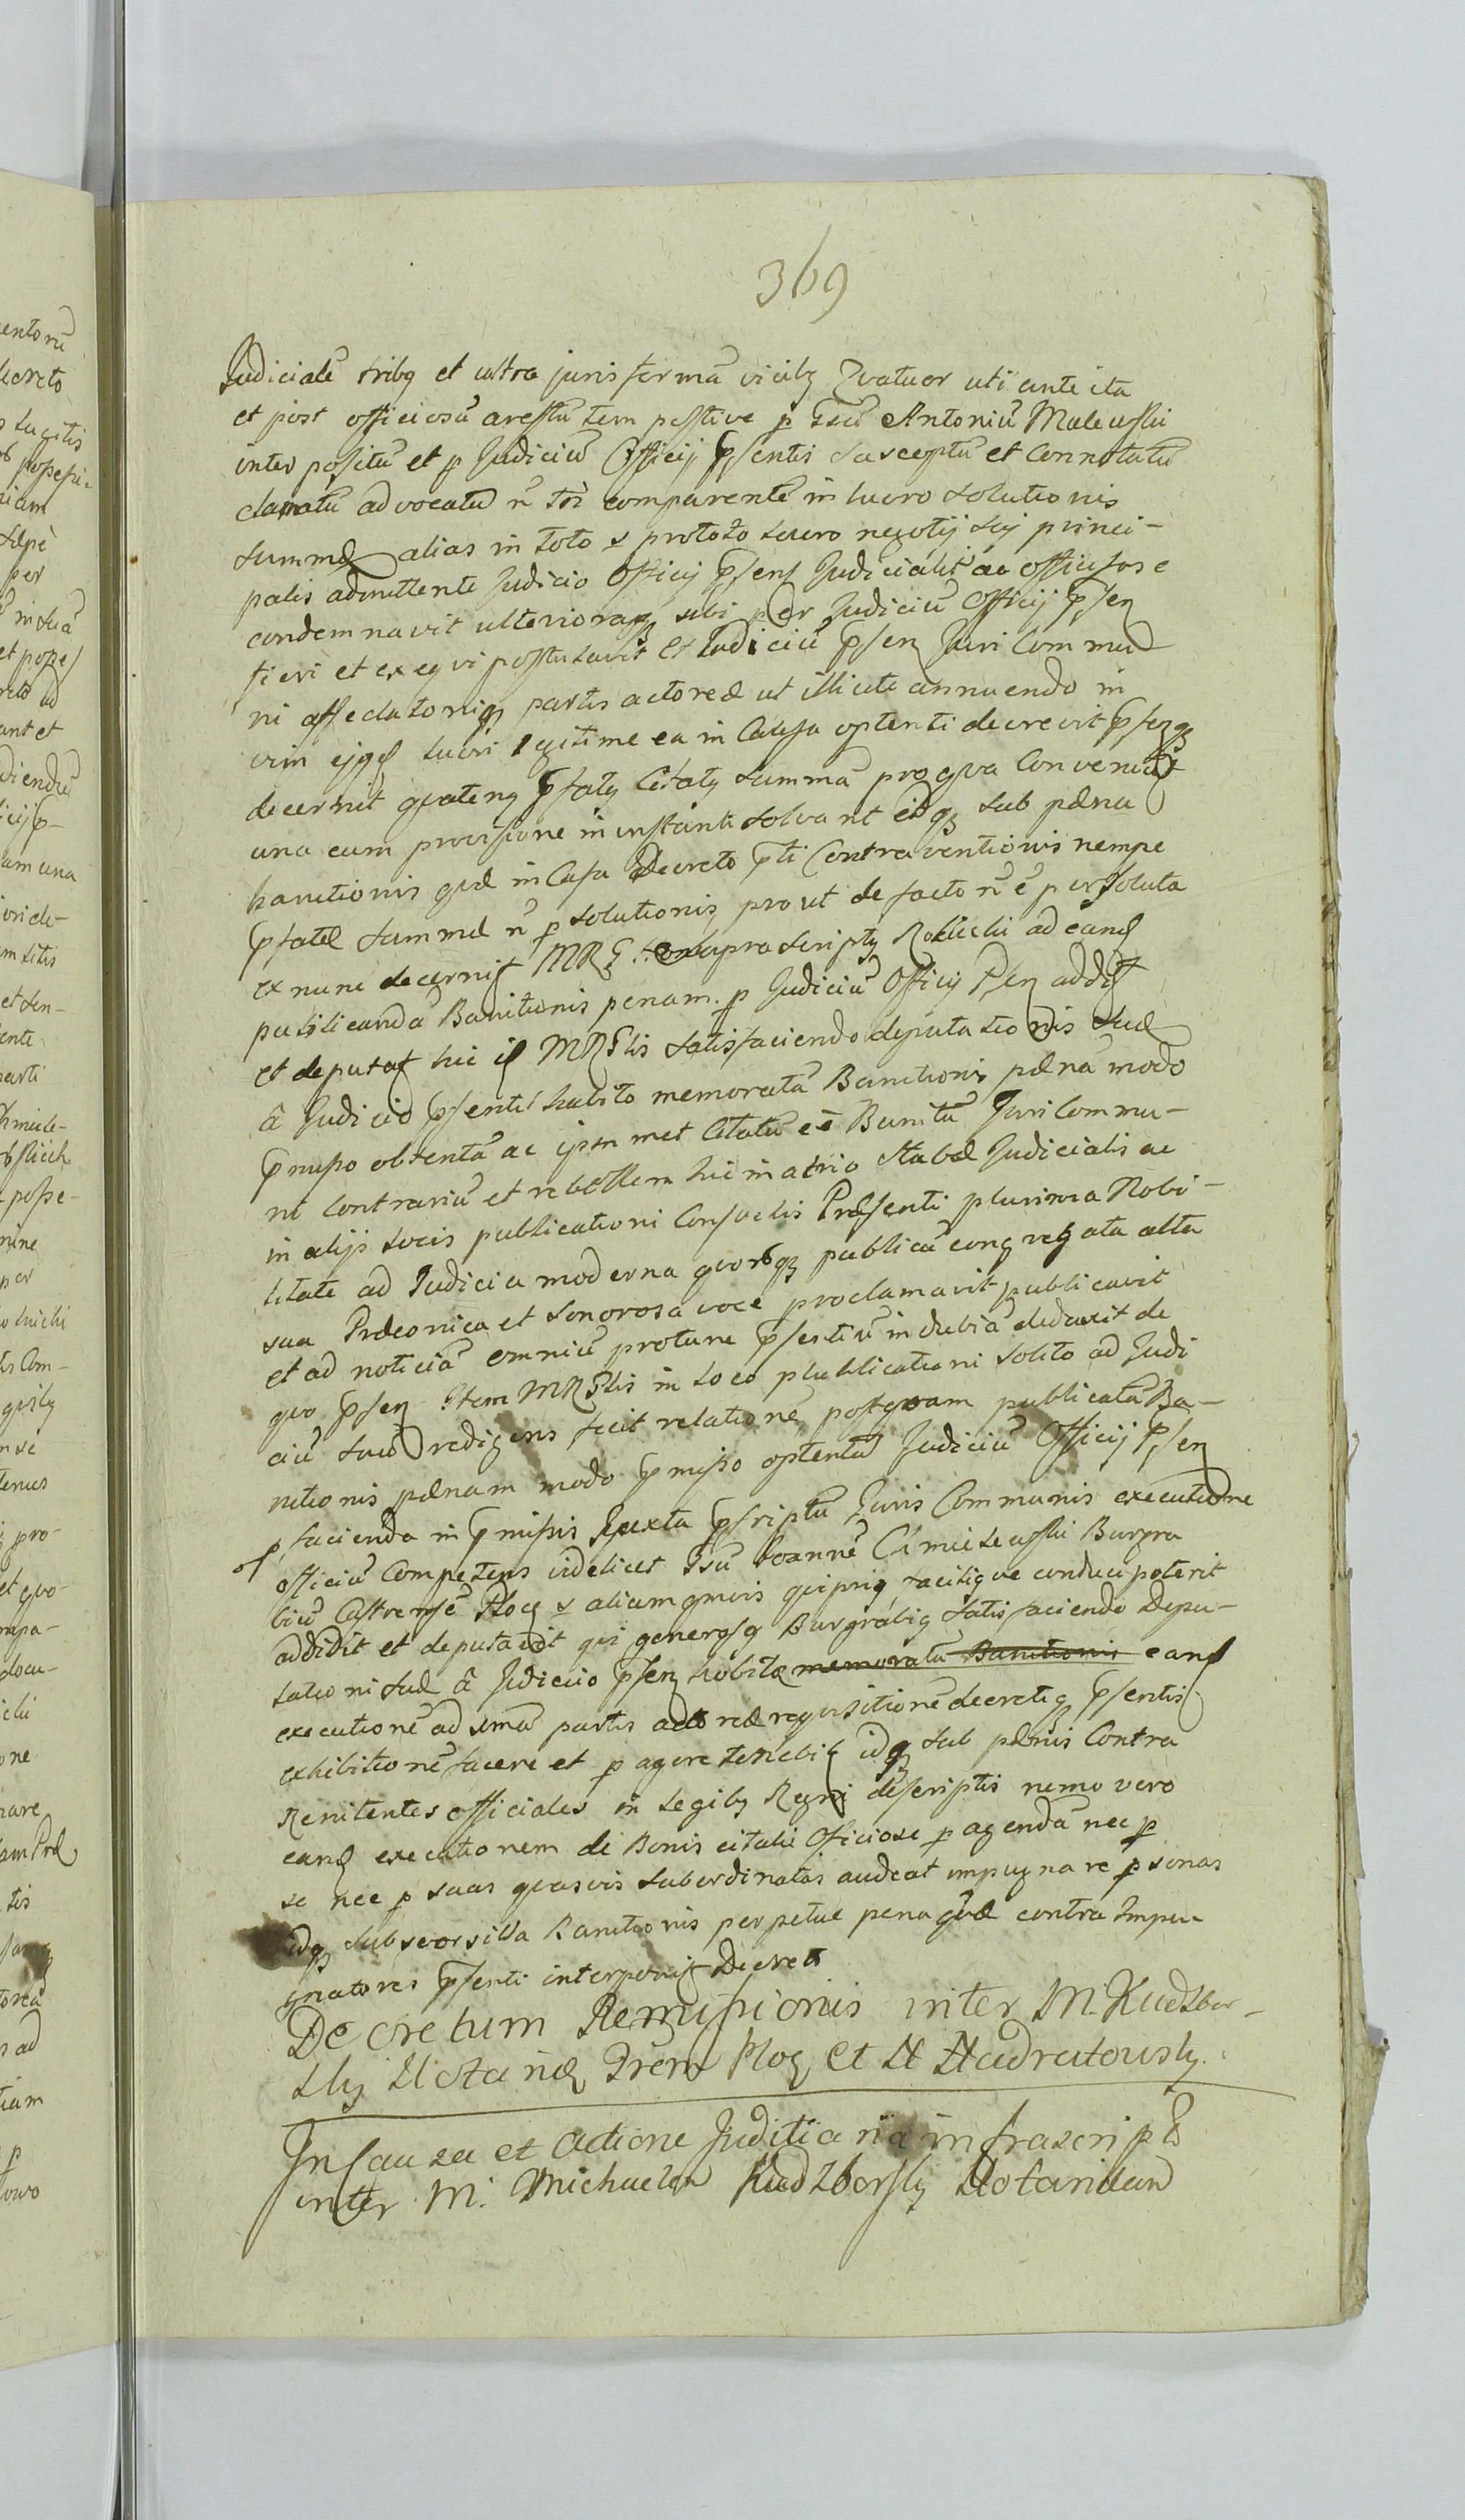 369
Judicialē tribq et ultra juris formā vicibq Quatuor uti ante ita
et post officiosū arestū tempestive p Gsū Antoniū Malewski
interpositū et p Judiciū Officij Psentis susceptū et connotatū
clamatū advocatū n̄ tn̄ comparentē in lucro solutionis
summæ alias in toto pro toto lucro negotij sui princi-
palis admittente Judicio Officij Psens Judicialit ac officiose
condemnavit ulterioraqz sibi per Judiciū Officij Psen
fieri et exequi postulavit Et Judiciū Psen Juri Commu
ni affectationiqz partis actoreæ ut illicite annuendo in
vim ejqd lucri legitime ea in Causa optenti decrevit Psenqz
decernit quatenq Pfatq Citatq summā pro qva Convenit
una cum provisione in instanti solvant idqz sub pæna
banitionis qvæ in Casu Decreto Pti Contraventionis nempe
Pfatæ summæ n̄ p solutionis prout de facto n̄ ē persoluta
ex nunc decernit MRG suprascriptq Rokicki ad eand
publicandā Banitionis penam p Judiciū Officij Psen addit
et deputat hic id MRGlis satisfaciendo deputationis suæ
â Judicio Psenti habito memoratā Banitionis pænā modo
Pmisso obtentā ac ipsummet Citatū eē Banitū Juri Commu-
ni Contrariū et rebellem hic in atrio stubæ Judicialis ac
in alijs locis publicationi Consuetis Præsenti plurima Nobi-
litate ad Judicia moderna qvorōqz publicā congregata alta
sua Præconica et sonorosa voce proclamavit publicavit
et ad noticiā omniū protunc Psentiū indubiā deduxit de
quo Psen Item MRGlis in loco publicationi solito ad Judi
ciū suū redigens fecit relationē, postqvam publicatā Ba-
nitionis pænam modo Pmisso optentā Judiciū Officij Psen
p facienda in Pmissis Juxta Pscriptū Juris Communis executione
officiū Competens videlicet Gsū Joannē Cimiszewski Burgra
biū Castrensē Ploc alium qmvis qui priq faciliqve conduci poterit
addidit et deputavit qui generosq Burgrabiq satisfaciendo Depu-
tationi suæ â Judicio Psen habitæ memoratā Banitionis eand
executionē ad primā partis actoreæ reqvisitionē decretiq Psentis
exhibitionē facere et p agere tenebit idqz sub pænis Contra
Renitentes officiales in Legibq Regni descriptis nemo vero
eand executionem de Bonis citati Oficiose p agendā nec p
se nec p suas qvasvis subordinatas audeat impugnare p sonas
idqz sub seorsiva Banitionis perpetue pena qvæ contra Impu-
gnatores Psenti interponit Decreto
Decretum Remissionis inter M. Kudzbor-
sky Notariū Trem Ploc et N Nadratowsky
In Causa et Actione Juditiaria infrascripta
inter M. Michaelem Kudzborsky Notarium